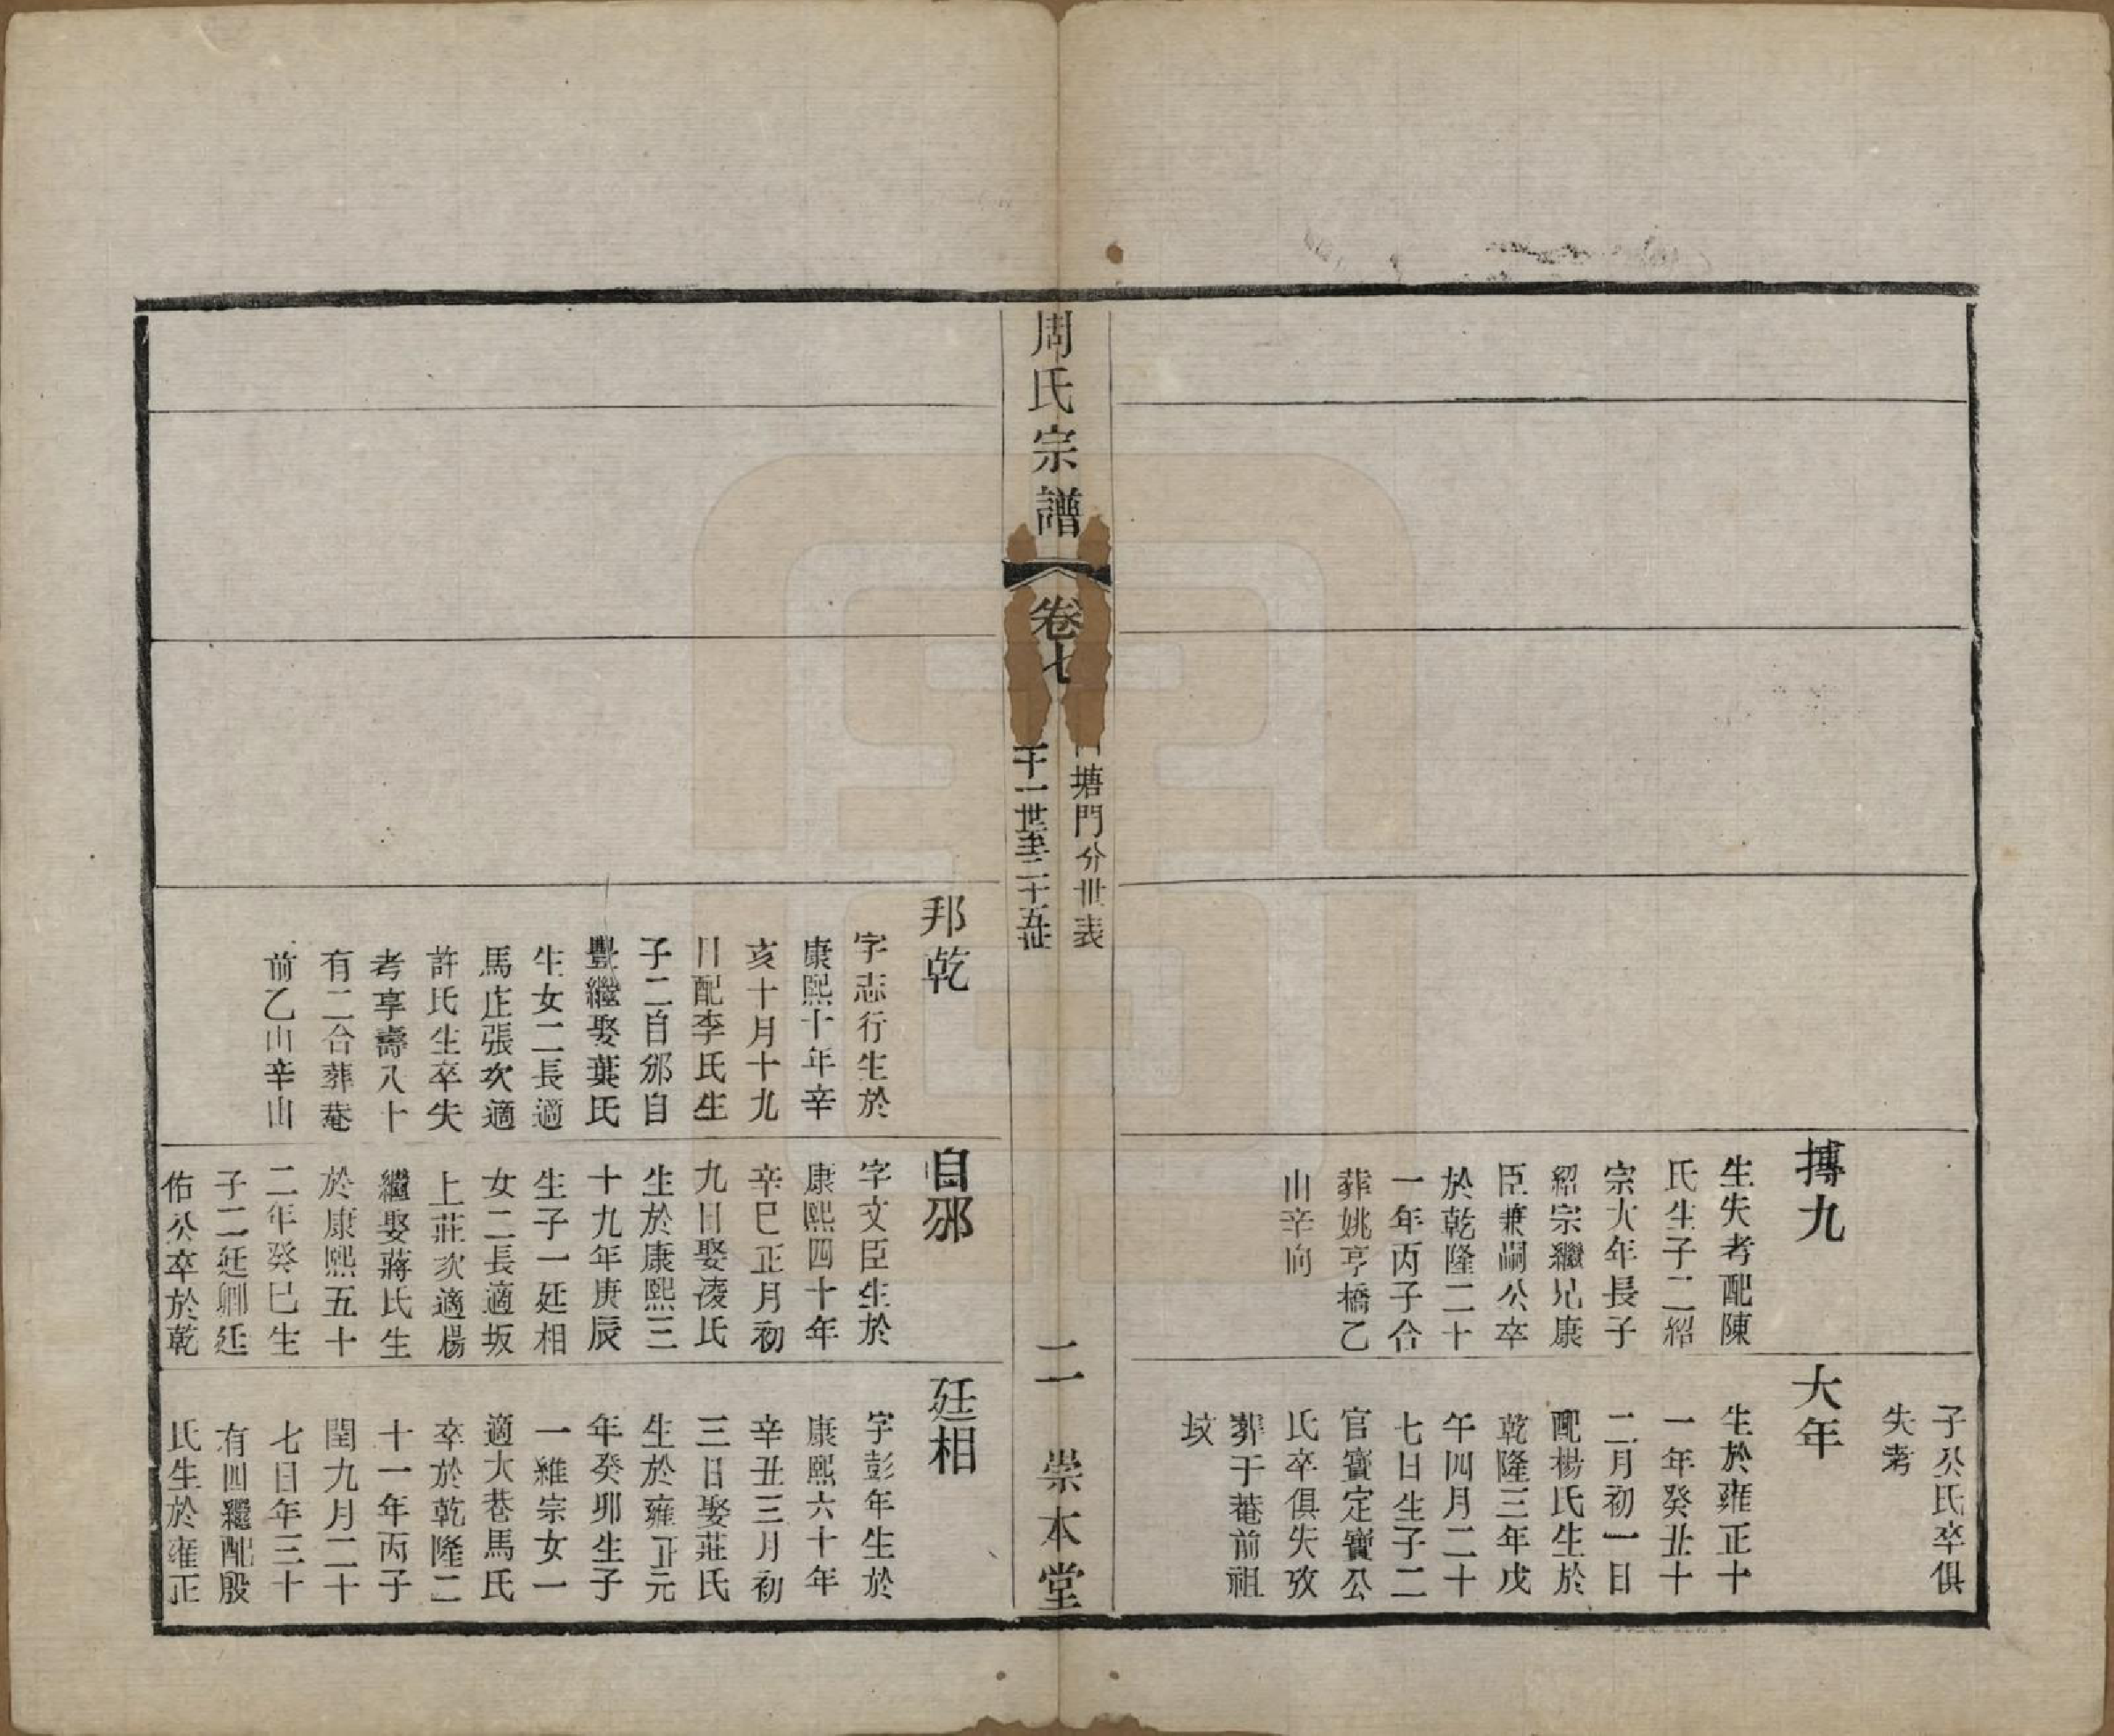 子公氏卒俱
失考
搏九
生失考配陳
氏生子二紹
宗大年長子
紹宗繼兄康
臣兼嗣公卒
於乾隆二十
一年丙子合
葬姚亨橋乙
山辛向
大年
生於雍正十
一年癸丑十
二月初一日
配楊氏生於
乾隆三年戊
午四月二十
七日生子二
官寶定寶公
氏卒俱失攷
葬于菴前祖
坟
周氏宗譜
卷七
塘門分世表
十一世至二十五世
二
崇本堂
邦乾
字志行生於
康熙十年辛
亥十月十九
日配李氏生
子二自邠自
豐繼娶葉氏
生女二長適
馬庄張次適
許氏生卒失
考享壽八十
有二合葬菴
前乙山辛山
自邠
字文臣生於
康熙四十年
辛巳正月初
九日娶淩氏
生於康熙三
十九年庚辰
生子一廷相
女二長適坂
上莊次適楊
繼娶蔣氏生
於康熙五十
二年癸巳生
子二廷卿廷
佑公卒於乾
廷相
字彭年生於
康熙六十年
辛丑三月初
三日娶莊氏
生於雍正元
年癸卯生子
一維宗女一
適大巷馬氏
卒於乾隆二
十一年丙子
閏九月二十
七日年三十
有四繼配殷
氏生於雍正